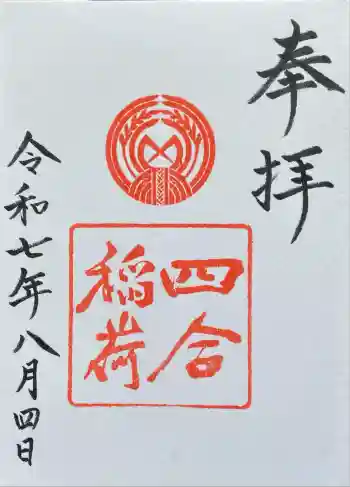 奉拝
四合
稲荷
令和七年八月四日